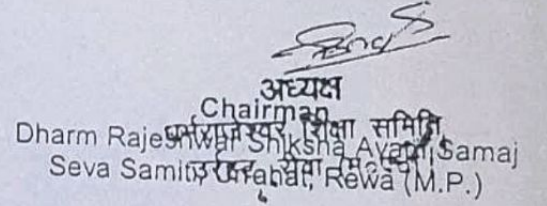 अध्यक्ष
Chairman
धर्मराजेश्वर शिक्षा समिति
Dharm Rajeshwar Shiksha Avam Samaj
Seva Samiti, Urrahat, Rewa (M.P.)